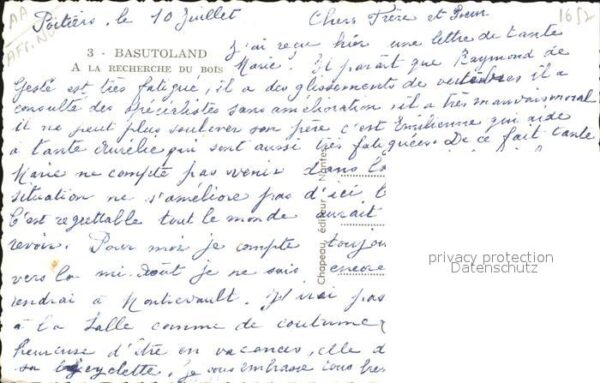 AA
AFR.NO
1652
Poitiers, le 10 Juillet
Chers Frère et Soeur
3 - BASUTOLAND
A LA RECHERCHE DU BOIS
J'ai reçu hier une lettre de tante
Marie. Il parait que Raymond de
Gesté est très fatigué, il a des glissements de vertèbres il a
consulté des spécialistes sans amélioration il a très mauvais moral
il ne peut plus soulever son père c'est Emilienne qui aide
à tante Aurélie qui sont aussi très fatiguées. De ce fait tante
Marie ne compte pas venir dans la
situation ne s'améliore pas d'ici
C'est regrettable tout le monde aurait
revoir. Pour moi je compte toujou
vers la mi-août je ne sais encore
viendrai à Montrevault. J'irai pas
à la Salle comme de coutume
heureuse d'être en vacances, elle d
sa bicyclette, je vous embrasse tous
Chapeau, éditeur - Nantes
privacy protection
Datenschutz